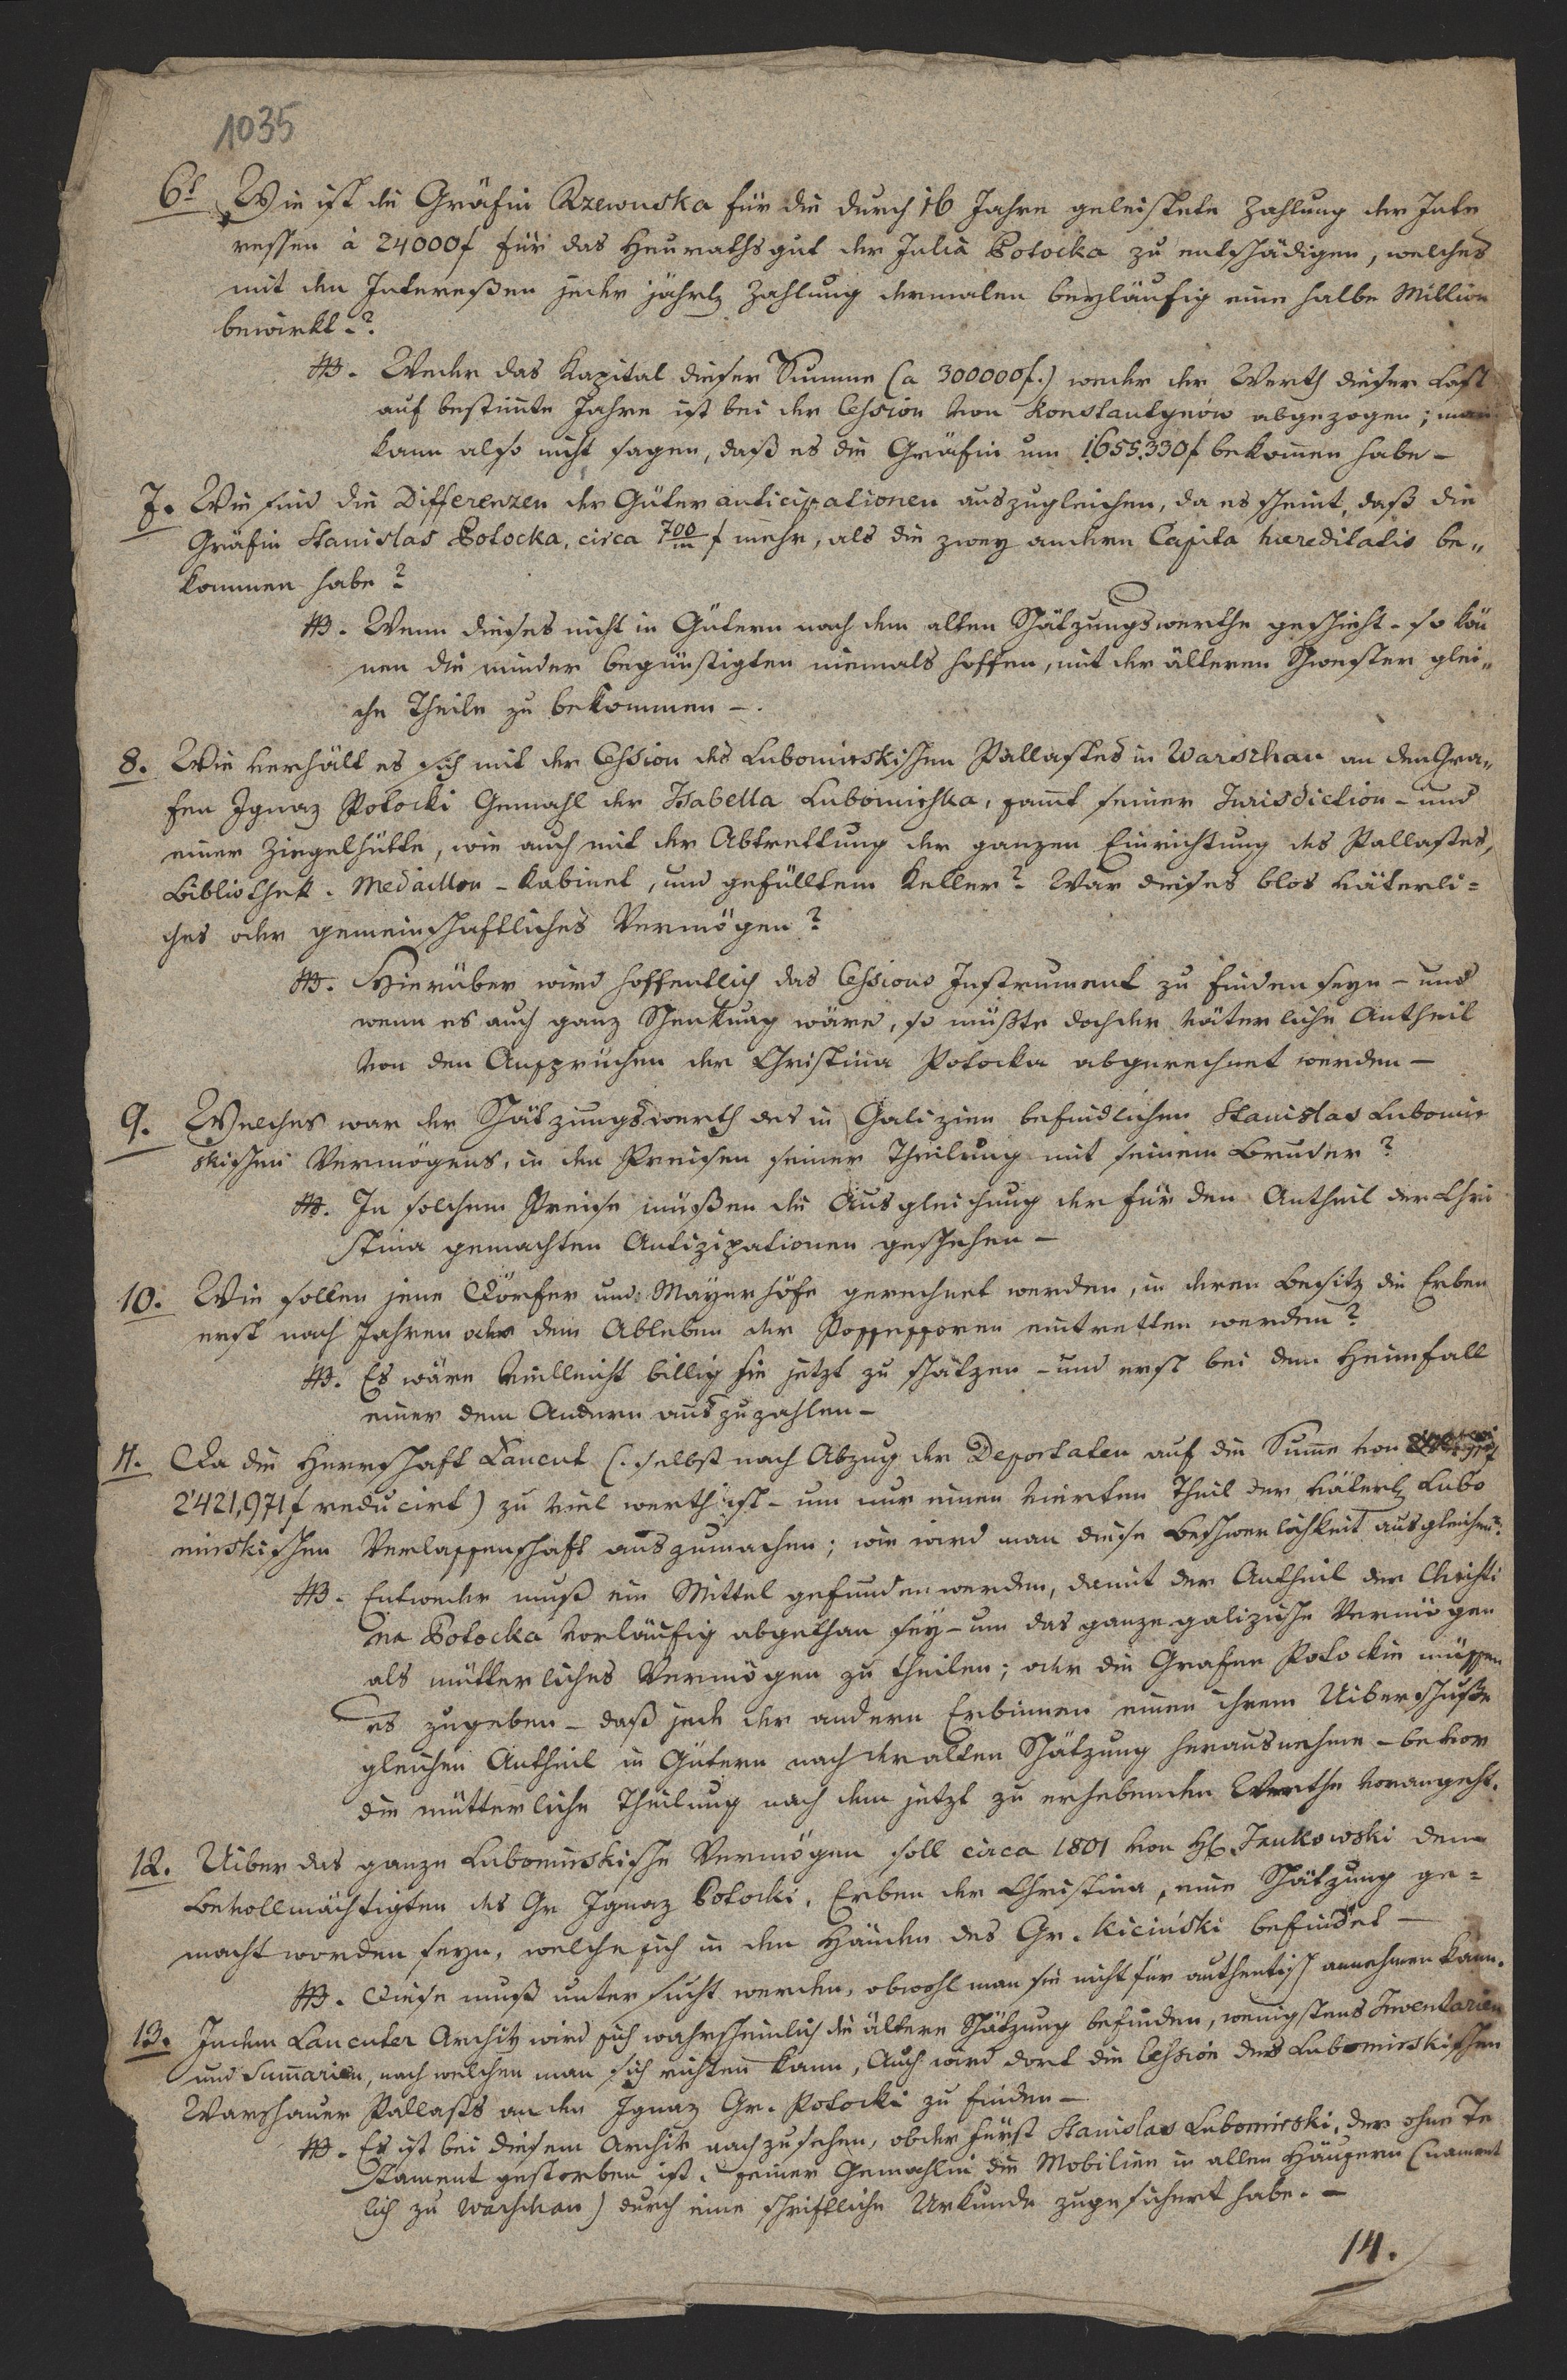 1035
6t Wie ist die Gräfin Rzewuska für die durch 16 Jahre geleistete Zahlung der Inte
ressen à 24000f für das Heurathsgut der Julia Potocka zu entschädigen, welches
mit den Intereßen jeder jährl Zahlung dermalen beyläufig eine halbe Million
bewirkt?
NB. Weder das Kapital dieser Summe (a 300000f.) weder der Werth dieser Last
auf bestimte Jahre ist bei der Cession von Konstantynow abgezogen; man
kann also nicht sagen, daß es die Gräfin um 1655,330f bekomen habe –
7. Wie sind die Differenzen der Güter anticipationen auszugleichen, da es scheint, daß die
Gräfin Stanislas Potocka, circa 700/m f mehr, als die zwey andern Capita hæreditatis be„
kommen habe?
NB. Wenn dieses nicht in Gütern nach dem alten Schätzungswerthe geschieht – so kön
nen die minder begünstigten niemals hoffen, mit der älteren Schwester glei„
che Theile zu bekommen –.
8. Wie verhält es sich mit der Cession des Lubomirskischen Pallastes in Warschau an den Gra„
fen Ignaz Potocki Gemahl der Isabella Lubomirska, samt seiner Jurisdiction – und
einer Ziegelhütte, wie auch mit der Abtrettung der ganzen Einrichtung des Pallastes,
Bibliothek. Medaillon – Kabinet, und gefülltem Keller? War dieses blos väterli=
ches oder gemeinschaftliches Vermögen?
NB. Hierüber wird hoffentlich das Cessions Instrument zu finden seyn – und
wenn es auch ganz Schenkung wäre, so müßte doch der väterliche Antheil
von den Ansprüchen der Christina Potocka abgerechnet werden –
9. Welches war der Schätzungswerth des in Galizien befindlichen Stanislas Lubomir
skischen Vermögens, in den Preisen seiner Theilung mit seinem Bruder?
NB. In solchem Preise müßen die Ausgleichung der für den Antheil der Chri
stina gemachten Antizipationen geschehen –
10. Wie sollen jene Dörfer und Mayerhöfe gerechnet werden, in deren Besitz die Erben
erst nach Jahren oder dem Ableben der Possessoren eintretten werden?
NB. Es wäre vielleicht billig sie jetzt zu schätzen – und erst bei dem Heimfall
einer dem Andern auszuzahlen –
11. Da die Herrschaft Lancut (. selbst nach Abzug der Deportaten auf die Sume von
2'421,971f reducirt) zu viel werth ist – um nur einen vierten Theil der väterl Lubo
mirskischen Verlassenschaft auszumachen; wie wird man diese Beschwerlichkeit ausgleichen?
NB. Entweder muß ein Mittel gefunden werden, damit der Antheil der Christi
na Potocka vorläufig abgethan sey – um das ganze galizische Vermögen
als mütterliches Vermögen zu theilen; oder die Grafen Potockie müssen
es zugeben – daß jede der andern Erbinnen einen ihrem Uiberschuße
gleichen Antheil in Gütern nach der alten Schätzung herausnehme – bevor
die mütterliche Theilung nach dem jetzt zu erhebenden Werthe vorangeht.
12. Uiber das ganze Lubomirskische Vermögen soll circa 1801 von H. Jankowski dem
Bevollmächtigten des Gr Ignaz Potocki, Erben der Christina, eine Schätzung ge=
macht worden seyn, welche sich in den Händen des Gr. Kiciński befindet –
NB. Diese muß untersucht werden, obwohl man sie nicht für authentisch annehmen kann.
13. In dem Lancuter Archiv wird sich wahrscheinlich die ältere Schätzung befinden, wenigstens Inventarien
und Sumarien, nach welchen man sich richten kann, Auch wird dort die Cession des Lubomirskischen
Warschauer Pallasts an den Ignaz Gr. Potocki zu finden –
NB. Es ist bei diesem Archiv nachzusehen, ob der Fürst Stanislas Lubomirski, der ohne Te
stament gestorben ist, seiner Gemahlin die Mobilien in allen Häusern (nament
lich zu Warschau) durch eine schriftliche Urkunde zugesichert habe. –
14.